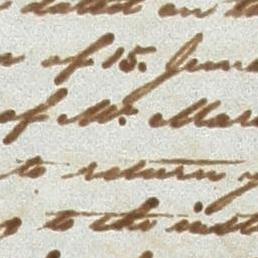 dated on th
of 15. June
of Mr. Mar
to return y
to the inst